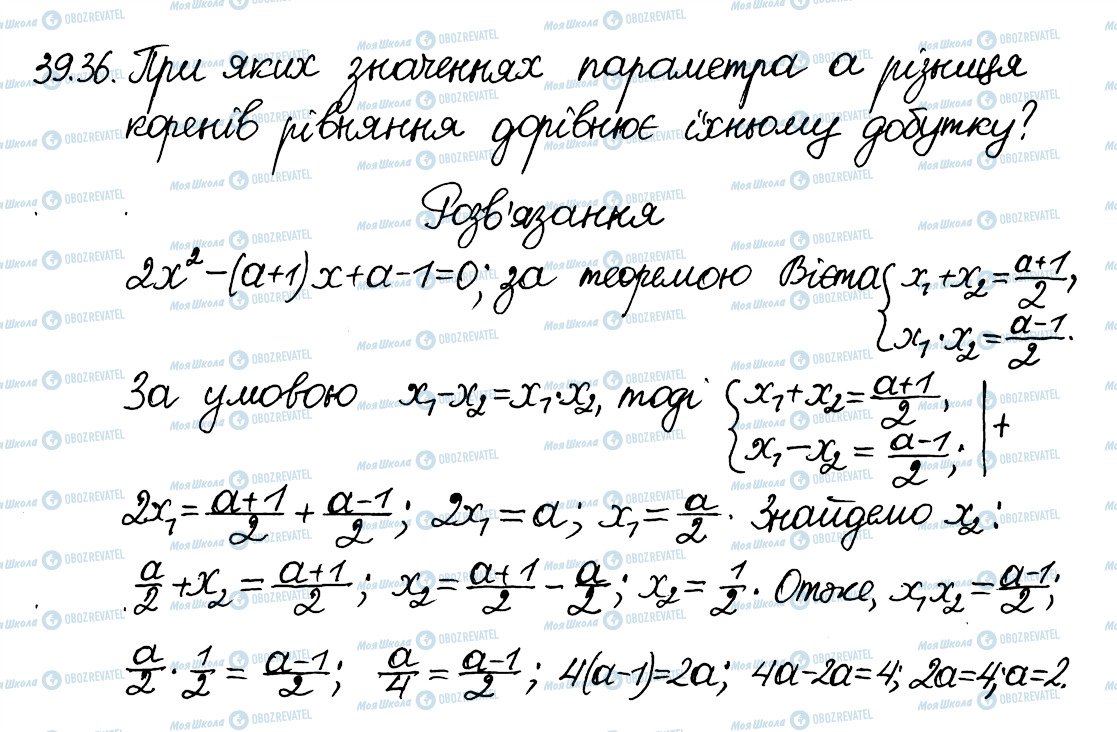 39.36. При яких значеннях параметра a різниця
коренів рівняння дорівнює їхньому добутку?
Розв'язання
2x² − (a+1)x + a − 1 = 0; за теоремою Вієта { x₁ + x₂ = (a+1)/2,
x₁ · x₂ = (a−1)/2.
За умовою x₁ − x₂ = x₁ · x₂, тоді { x₁ + x₂ = (a+1)/2,
x₁ − x₂ = (a−1)/2; | +
2x₁ = (a+1)/2 + (a−1)/2; 2x₁ = a; x₁ = a/2. Знайдемо x₂:
a/2 + x₂ = (a+1)/2; x₂ = (a+1)/2 − a/2; x₂ = 1/2. Отже, x₁x₂ = (a−1)/2;
a/2 · 1/2 = (a−1)/2; a/4 = (a−1)/2; 4(a−1) = 2a; 4a − 2a = 4; 2a = 4; a = 2.
Моя Школа OBOZREVATEL